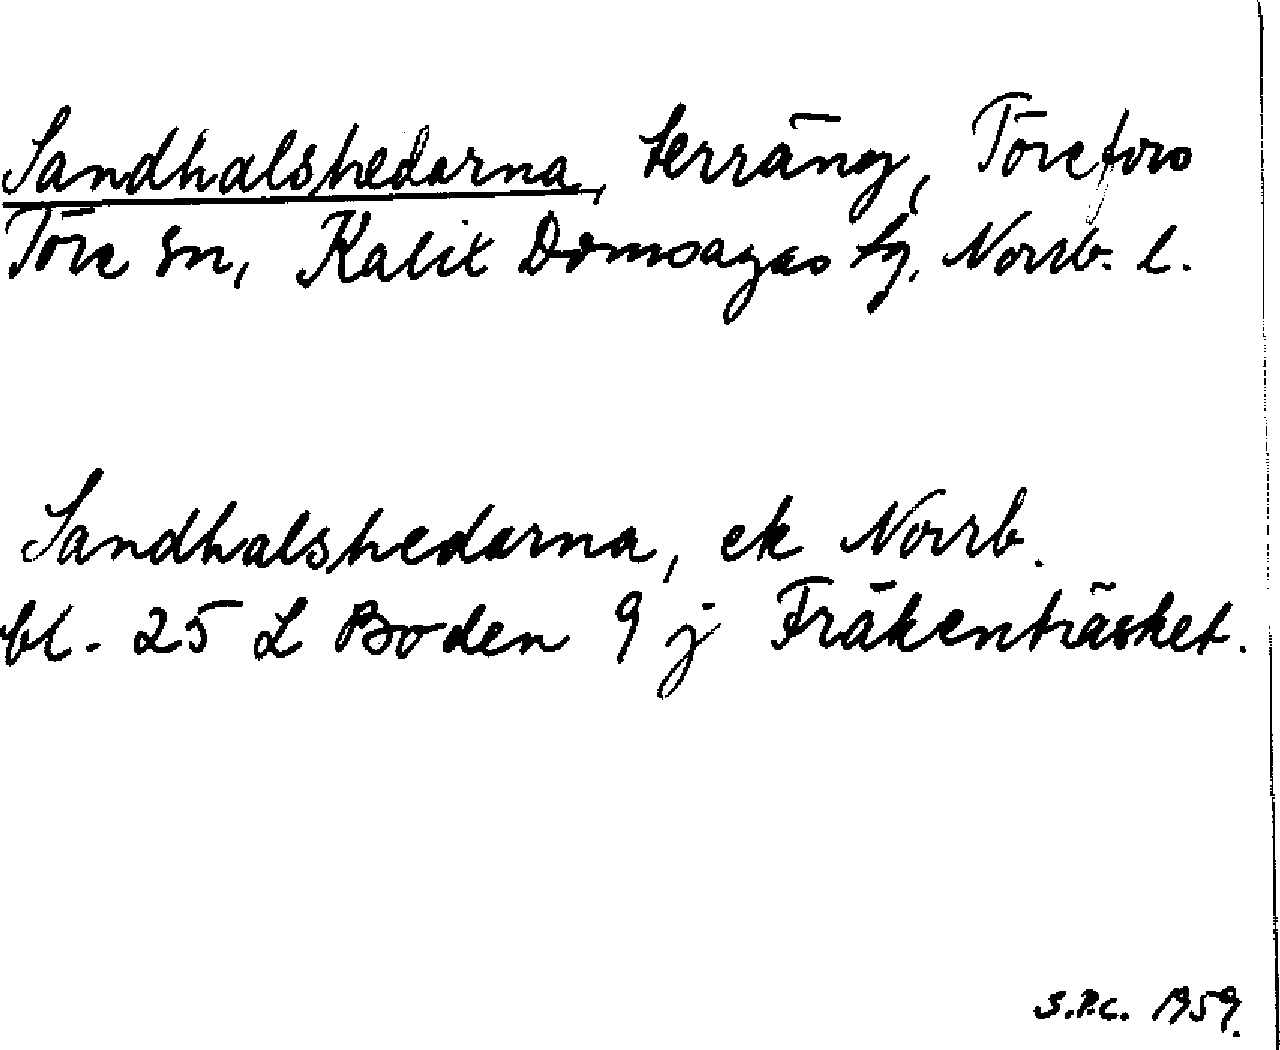 Sandhalshedarna, terräng, Törefors
Töre sn, Kalix Domsagas tg. Norrb. l.
Sandhalshedarna, ek Norrb.
bl. 25 L Boden 9 j Fräkenträsket.
S.P.C. 1959.